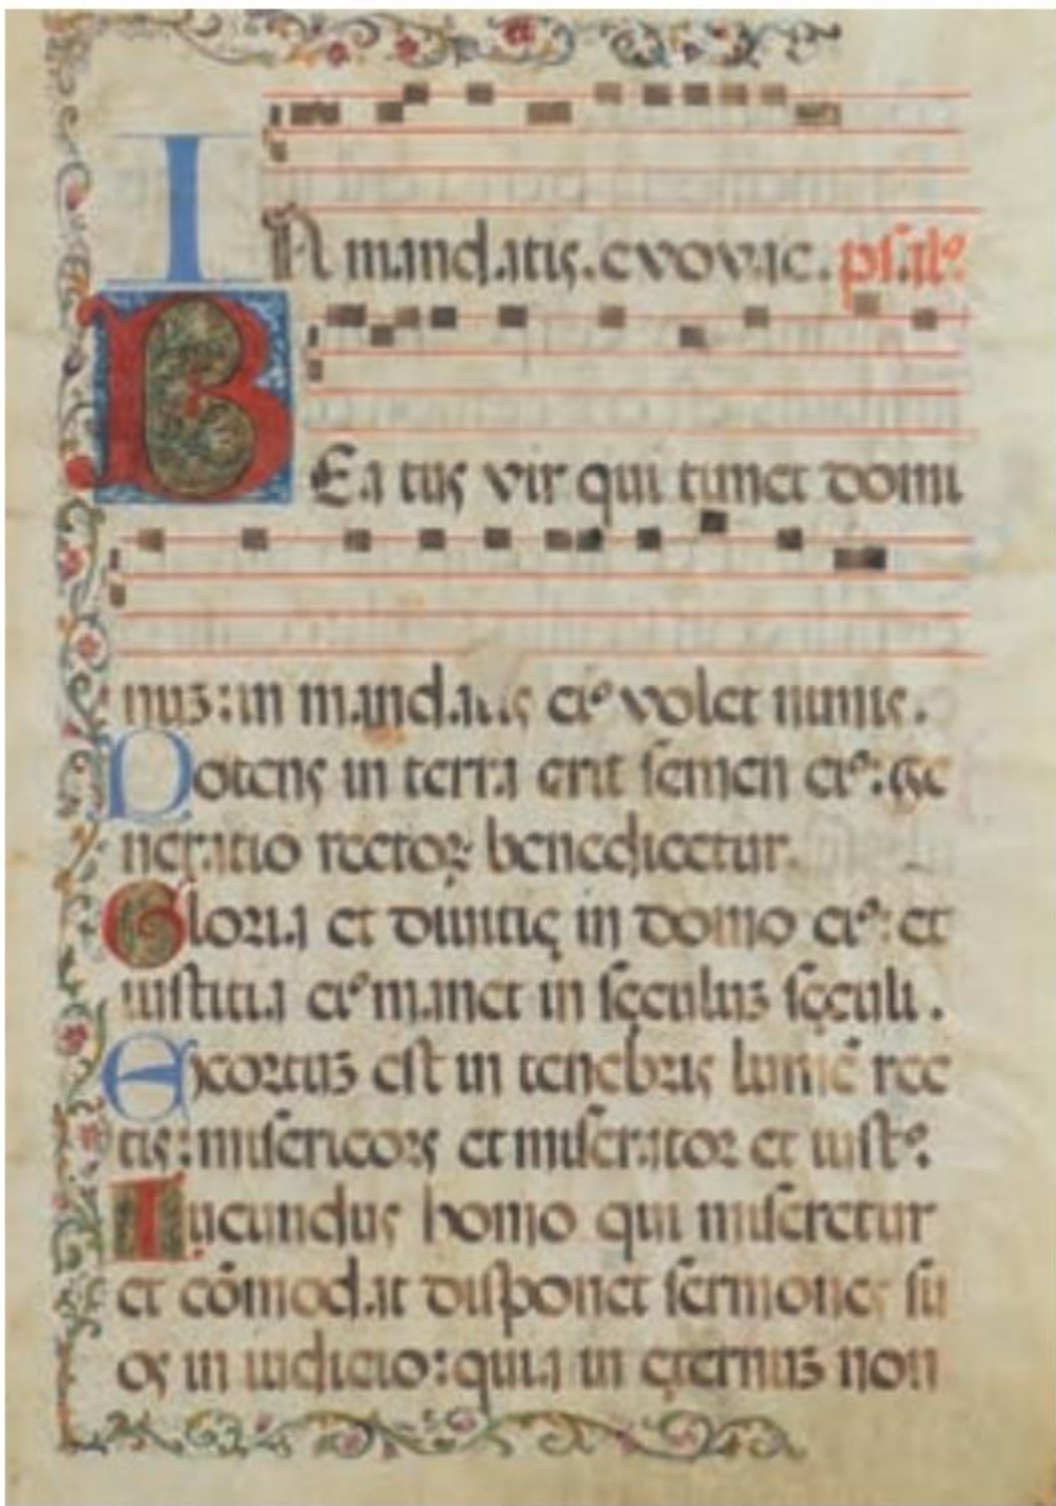 IN mandatis. evovae. psalº.
BEa tus vir qui timet domi
nuʒ: in mandatis eiº volet nimis.
Potens in terra erit semen eiº: ge
neratio rectoꝝ benedicetur.
Gloria et diuitię in domo eiº: et
iustitia eiº manet in sęculuʒ sęculi.
Exortuʒ est in tenebris lumē rec
tis: misericors et miserator et iustº.
Iucundus homo qui miseretur
et cōmodat disponet sermones su
os in iudicio: quia in ęternuʒ non